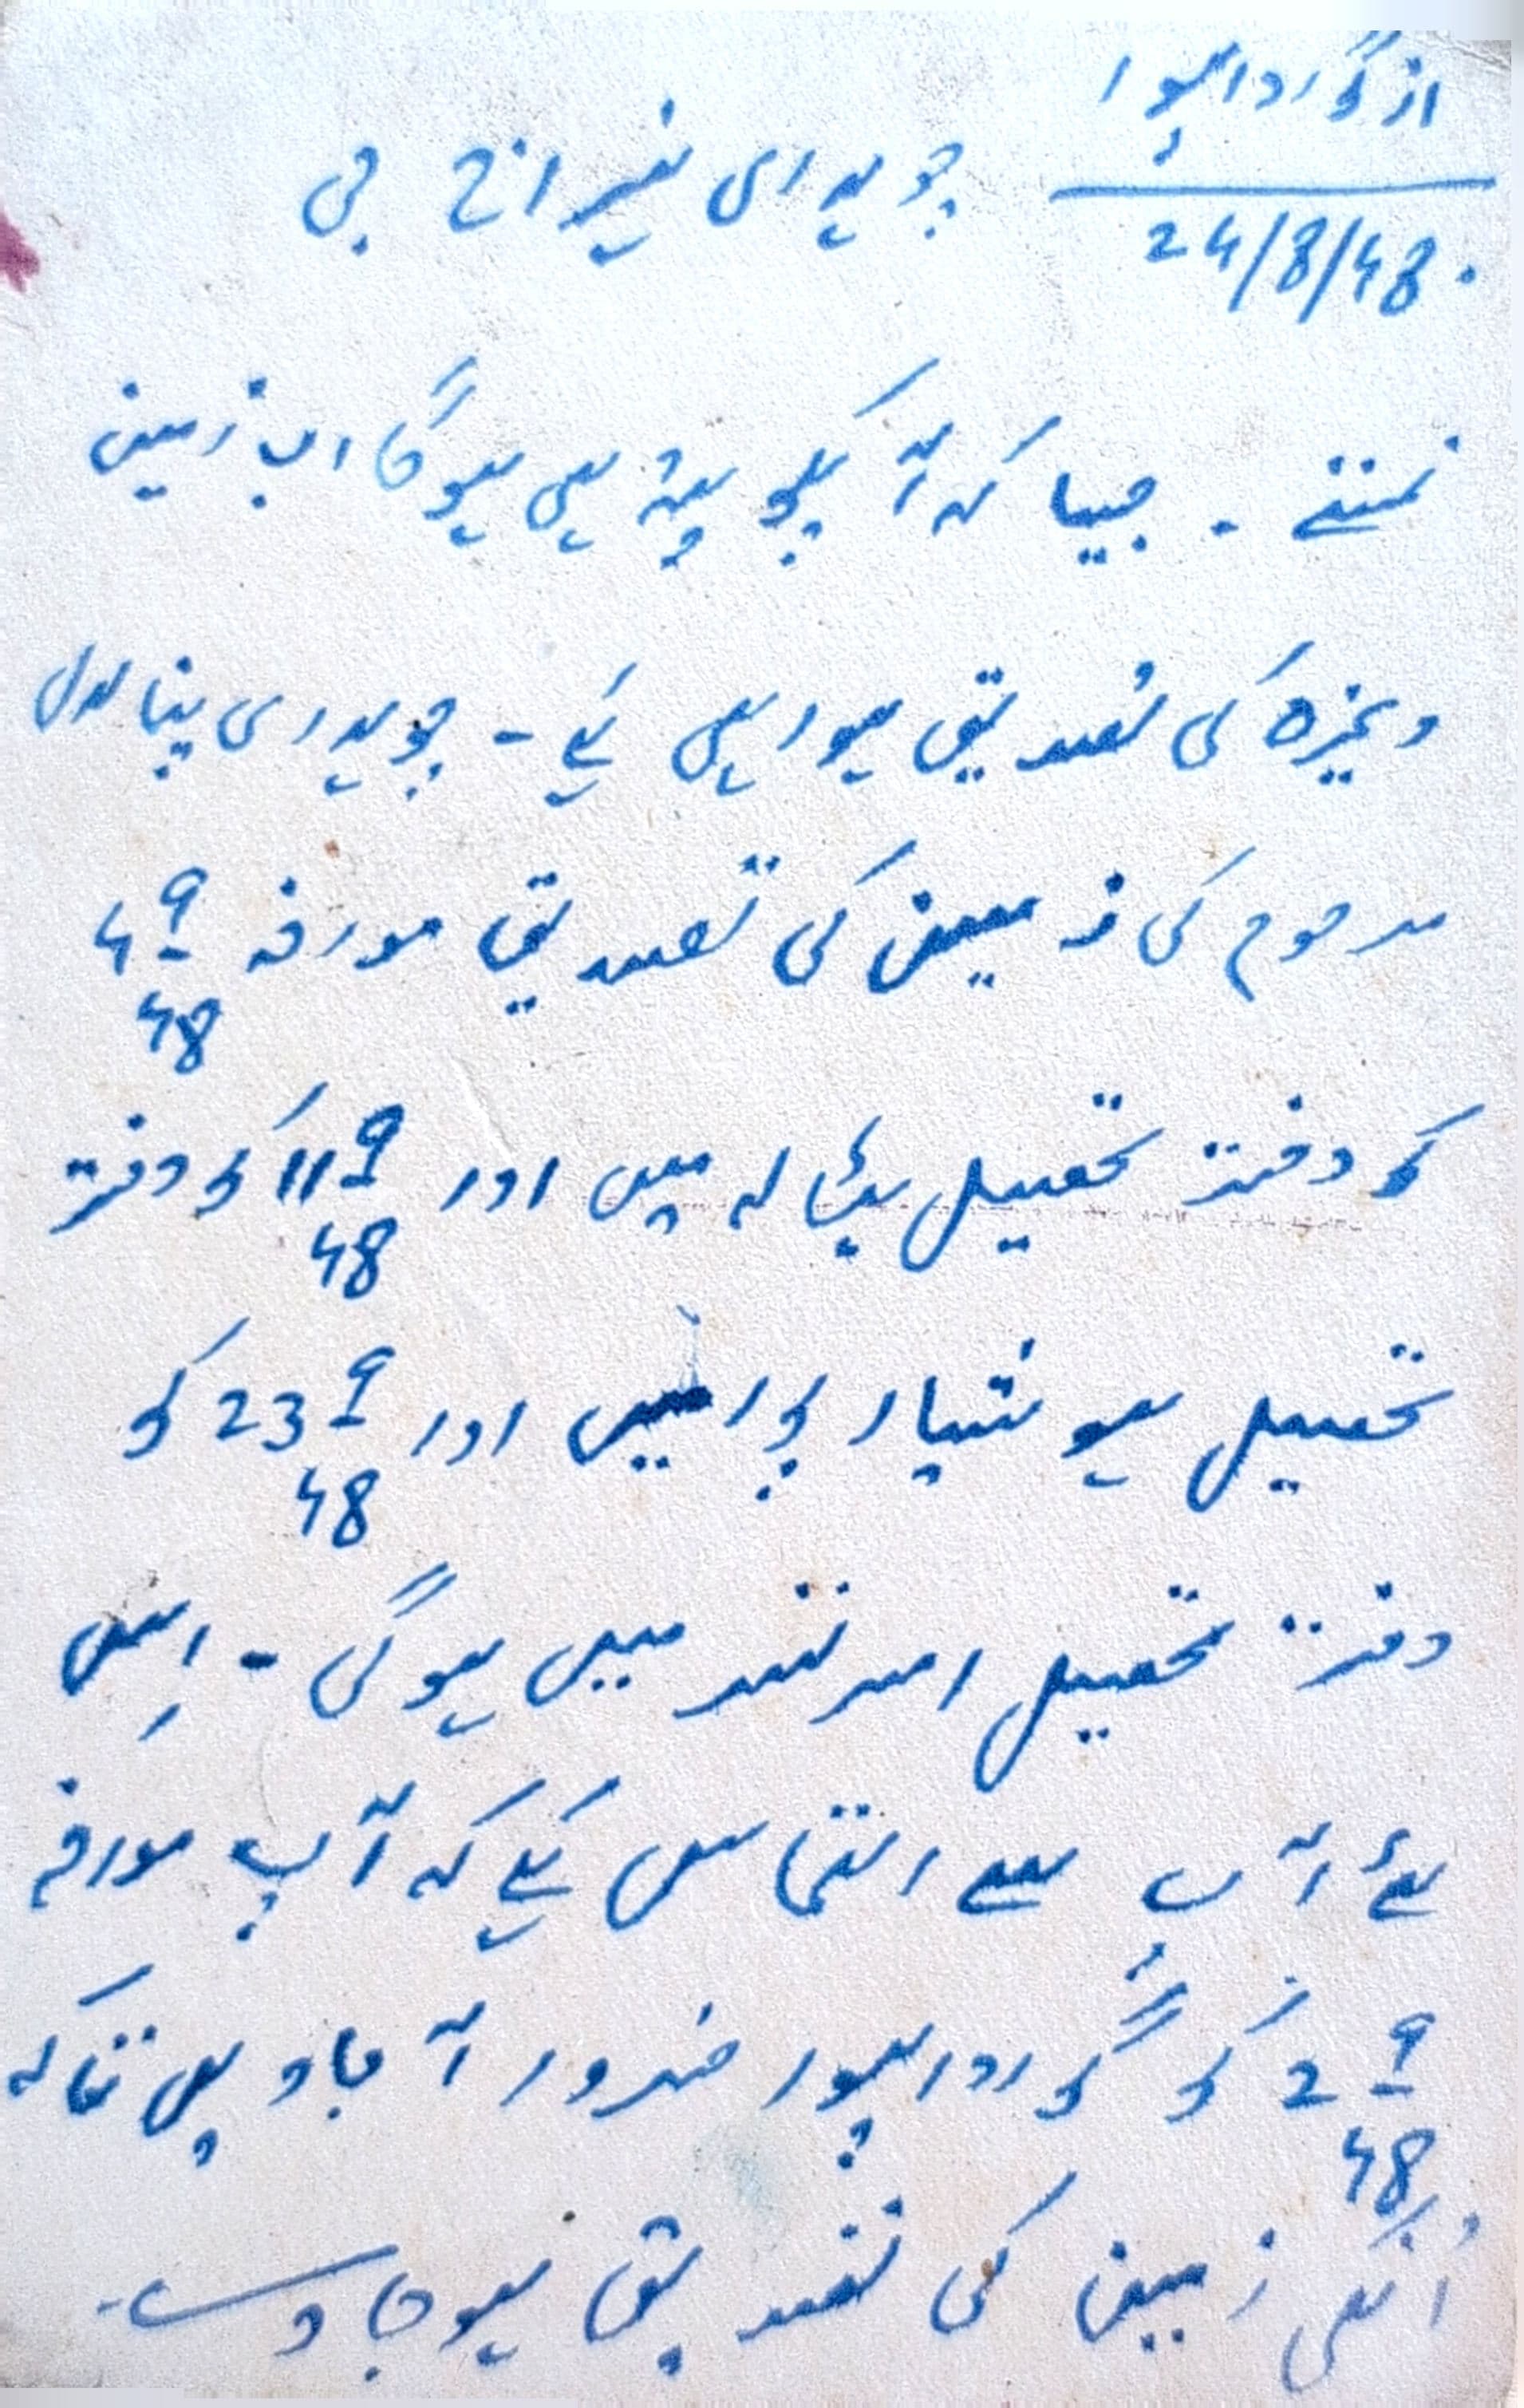 از گورداسپور
24/8/48.
چوہدری نصیر اج جی
نمستے - جیسا کہ آپکو پتہ ہی ہوگا اب زمین
وغیرہ کی تصدیق ہو رہی ہے - چوہدری پنا لال
مرحوم کی زمین کی تصدیق مورخہ 4 9/48
کو دفتر تحصیل بٹالہ میں اور 11 9/48 کو دفتر
تحصیل ہوشیارپور میں اور 23 9/48 کو
دفتر تحصیل امرتسر میں ہوگی - اِس
لئے آپ سے التماس ہے کہ آپ مورخہ
2 9/48 کو گورداسپور ضرور آ جاویں تاکہ
اُنکی زمین کی تصدیق ہو جاوے -